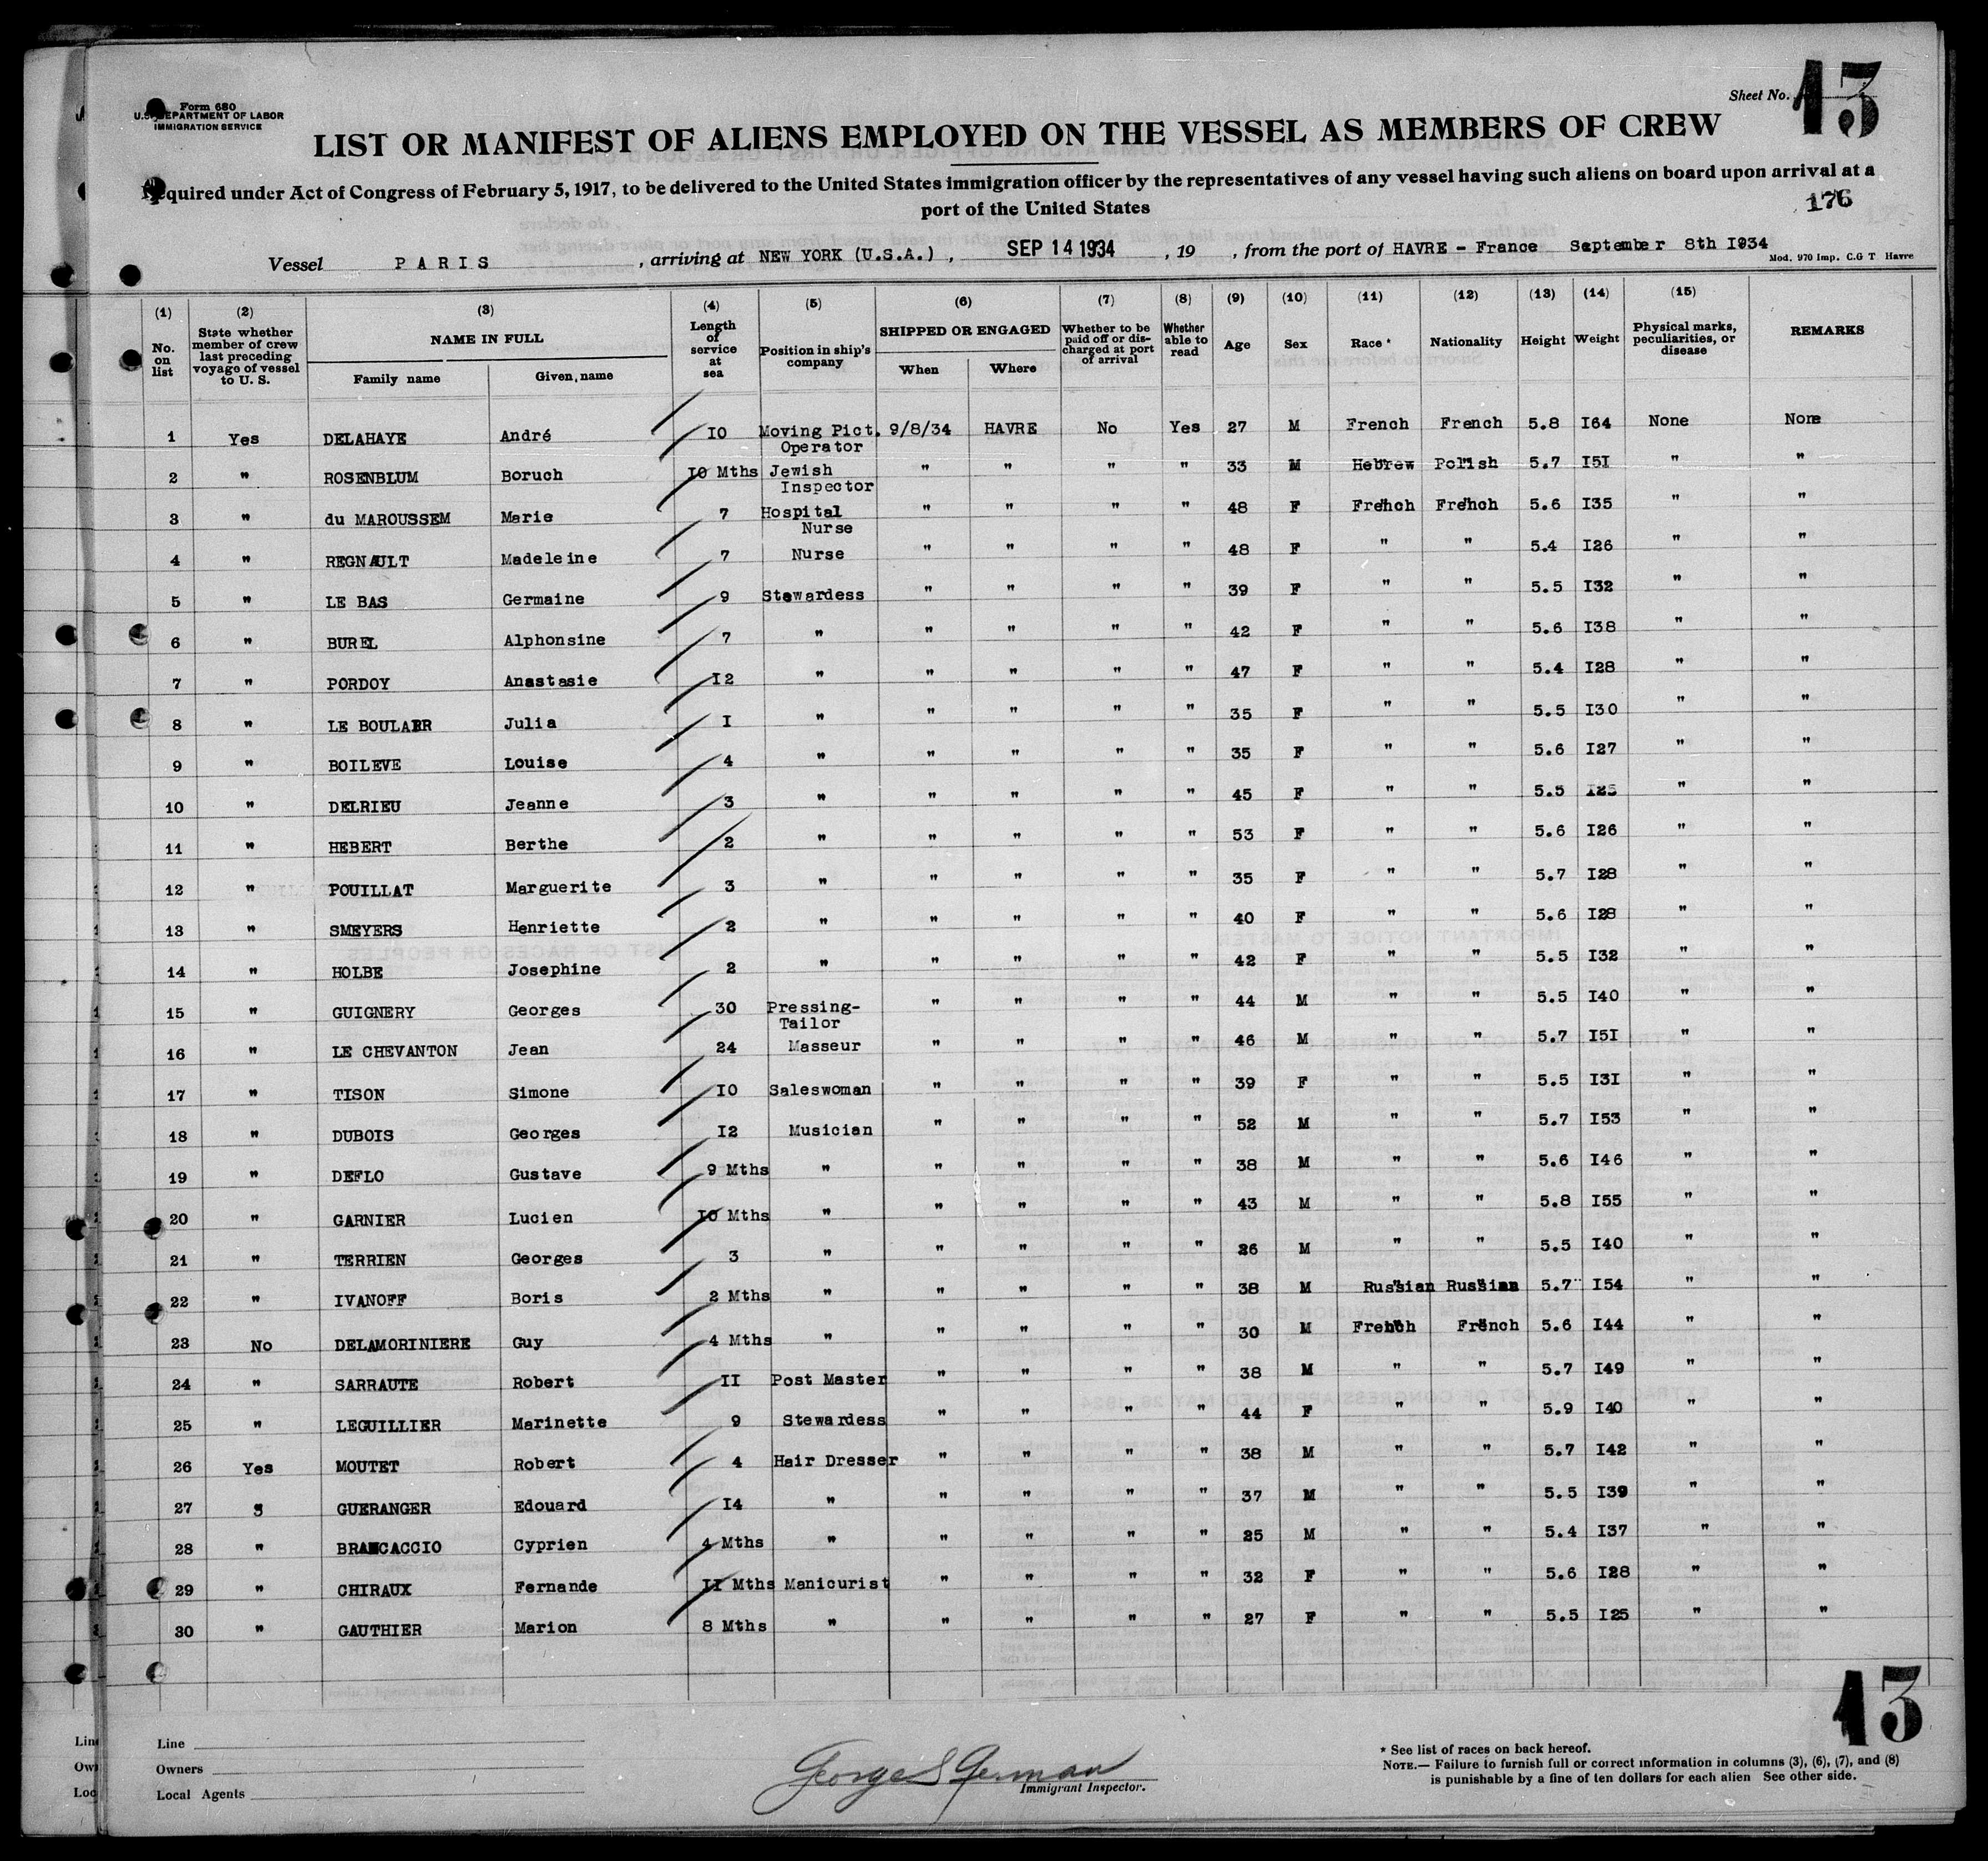 Form 680
U.S. DEPARTMENT OF LABOR
IMMIGRATION SERVICE
Sheet No. 13
LIST OR MANIFEST OF ALIENS EMPLOYED ON THE VESSEL AS MEMBERS OF CREW
Required under Act of Congress of February 5, 1917, to be delivered to the United States immigration officer by the representatives of any vessel having such aliens on board upon arrival at a
port of the United States
176
Vessel PARIS , arriving at NEW YORK (U.S.A.) , SEP 14 1934 , 19 , from the port of HAVRE - France September 8th I934
Mod. 970 Imp. C.G T Havre
(1) (2) (3) (4) (5) (6) (7) (8) (9) (10) (11) (12) (13) (14) (15)
No. on list State whether member of crew last preceding voyage of vessel to U. S. NAME IN FULL Family name Given name Length of service at sea Position in ship's company SHIPPED OR ENGAGED When Where Whether to be paid off or discharged at port of arrival Whether able to read Age Sex Race * Nationality Height Weight Physical marks, peculiarities, or disease REMARKS
1 Yes DELAHAYE André IO Moving Pict. Operator 9/8/34 HAVRE No Yes 27 M French French 5.8 I64 None None
2 " ROSENBLUM Boruch IO Mths Jewish Inspector " " " " 33 M Hebrew Polish 5.7 I5I " "
3 " du MAROUSSEM Marie 7 Hospital Nurse " " " " 48 F French French 5.6 I35 " "
4 " REGNAULT Madeleine 7 Nurse " " " " 48 F " " 5.4 I26 " "
5 " LE BAS Germaine 9 Stewardess " " " " 39 F " " 5.5 I32 " "
6 " BUREL Alphonsine 7 " " " " " 42 F " " 5.6 I38 " "
7 " PORDOY Anastasie I2 " " " " " 47 F " " 5.4 I28 " "
8 " LE BOULAER Julia I " " " " " 35 F " " 5.5 I30 " "
9 " BOILEVE Louise 4 " " " " " 35 F " " 5.6 I27 " "
10 " DELRIEU Jeanne 3 " " " " " 45 F " " 5.5 I25 " "
11 " HEBERT Berthe 2 " " " " " 53 F " " 5.6 I26 " "
12 " POUILLAT Marguerite 3 " " " " " 35 F " " 5.7 I28 " "
13 " SMEYERS Henriette 2 " " " " " 40 F " " 5.6 I28 " "
14 " HOLBE Josephine 2 " " " " " 42 F " " 5.5 I32 " "
15 " GUIGNERY Georges 30 Pressing-Tailor " " " " 44 M " " 5.5 I40 " "
16 " LE CHEVANTON Jean 24 Masseur " " " " 46 M " " 5.7 I5I " "
17 " TISON Simone IO Saleswoman " " " " 39 F " " 5.5 I3I " "
18 " DUBOIS Georges I2 Musician " " " " 52 M " " 5.7 I53 " "
19 " DEFLO Gustave 9 Mths " " " " " 38 M " " 5.6 I46 " "
20 " GARNIER Lucien IO Mths " " " " " 43 M " " 5.8 I55 " "
21 " TERRIEN Georges 3 " " " " " 26 M " " 5.5 I40 " "
22 " IVANOFF Boris 2 Mths " " " " " 38 M Russian Russian 5.7 I54 " "
23 No DELAMORINIERE Guy 4 Mths " " " " " 30 M French French 5.6 I44 " "
24 " SARRAUTE Robert II Post Master " " " " 38 M " " 5.7 I49 " "
25 " LEGUILLIER Marinette 9 Stewardess " " " " 44 F " " 5.9 I40 " "
26 Yes MOUTET Robert 4 Hair Dresser " " " " 38 M " " 5.7 I42 " "
27 " GUERANGER Edouard I4 " " " " " 37 M " " 5.5 I39 " "
28 " BRANCACCIO Cyprien 4 Mths " " " " " 25 M " " 5.4 I37 " "
29 " CHIRAUX Fernande II Mths Manicurist " " " " 32 F " " 5.6 I28 " "
30 " GAUTHIER Marion 8 Mths " " " " " 27 F " " 5.5 I25 " "
13
Line
Owners
Local Agents
George S German
Immigrant Inspector.
* See list of races on back hereof.
NOTE.— Failure to furnish full or correct information in columns (3), (6), (7), and (8)
is punishable by a fine of ten dollars for each alien See other side.